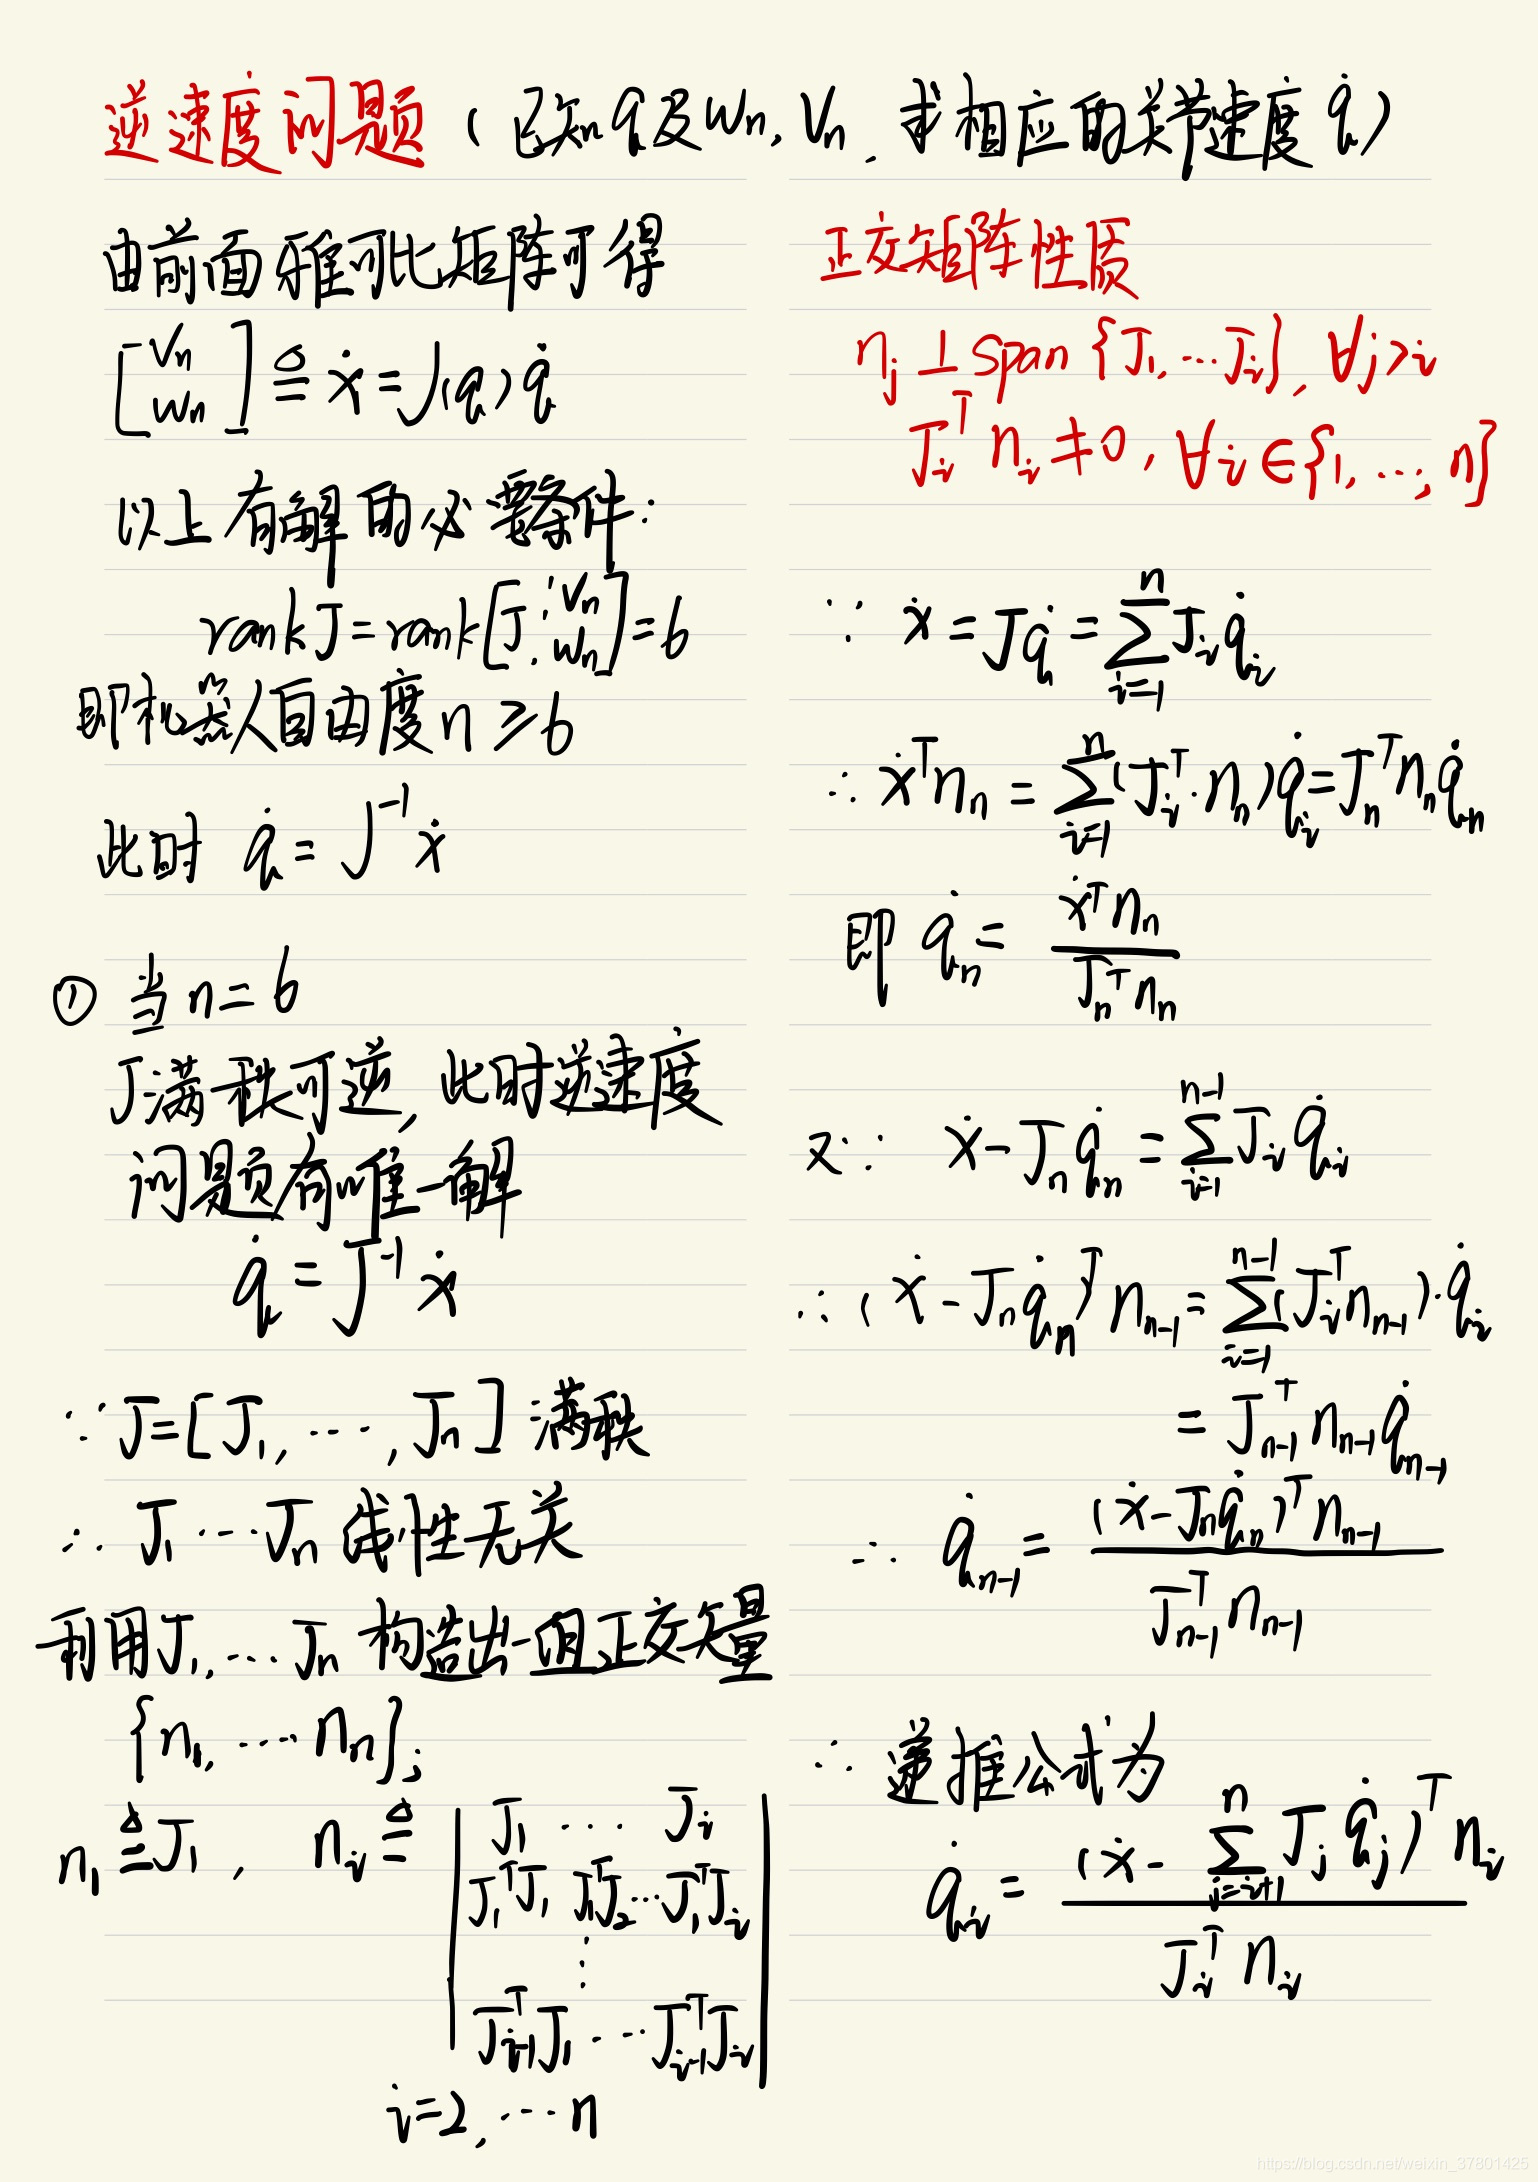 逆速度问题（已知q及wn, Vn, 求相应的关节速度 q̇）
由前面雅可比矩阵可得
[Vn
wn] ≜ ẋ = J(q) q̇
以上有解的必要条件:
rank J = rank[J ⋮ Vn
wn] = 6
即机器人自由度 n ≥ 6
此时 q̇ = J⁻¹ ẋ
① 当 n = 6
J满秩可逆, 此时逆速度
问题有唯一解
q̇ = J⁻¹ ẋ
∵ J = [J₁, ⋯, Jn] 满秩
∴ J₁ ⋯ Jn 线性无关
利用J₁, ⋯ Jn 构造出一组正交矢量
{n₁, ⋯ nn};
n₁ ≜ J₁, nᵢ ≜ | J₁ ⋯ Jᵢ
J₁ᵀJ₁ J₁ᵀJ₂ ⋯ J₁ᵀJᵢ
⋮
Jᵢ₋₁ᵀJ₁ ⋯ Jᵢ₋₁ᵀJᵢ |
i = 2, ⋯ n
正交矩阵性质
nⱼ ⊥ span {J₁, ⋯ Jᵢ}, ∀j > i
Jᵢᵀ nᵢ ≠ 0, ∀i ∈ {1, ⋯, n}
∵ ẋ = Jq̇ = ∑ᵢ₌₁ⁿ Jᵢ q̇ᵢ
∴ ẋᵀnn = ∑ᵢ₌₁ⁿ (Jᵢᵀ · nn) q̇ᵢ = Jnᵀ nn q̇n
即 q̇n = ẋᵀ nn / Jnᵀ nn
又∵ ẋ - Jn q̇n = ∑ᵢ₌₁ⁿ⁻¹ Jᵢ q̇ᵢ
∴ (ẋ - Jn q̇n)ᵀ nn-1 = ∑ᵢ₌₁ⁿ⁻¹ (Jᵢᵀ nn-1) · q̇ᵢ
= Jn-1ᵀ nn-1 q̇n-1
∴ q̇n-1 = (ẋ - Jn q̇n)ᵀ nn-1 / Jn-1ᵀ nn-1
∴ 递推公式为
q̇ᵢ = (ẋ - ∑ⱼ₌ᵢ₊₁ⁿ Jⱼ q̇ⱼ)ᵀ nᵢ / Jᵢᵀ nᵢ
https://blog.csdn.net/weixin_37801425